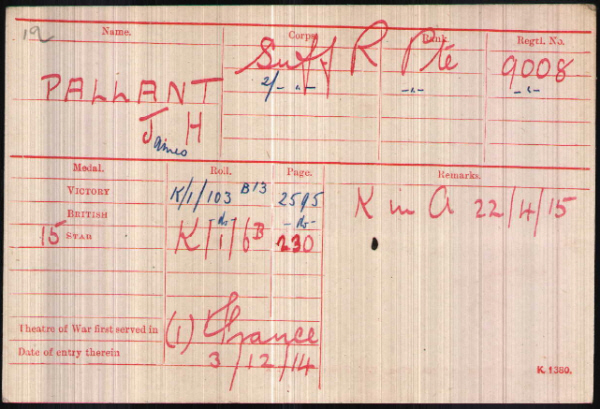 19
Name. Corps. Rank. Regtl. No.
Suff R Pte 9008
PALLANT 2/ -"- -"- -"-
J H
ames
Medal. Roll. Page. Remarks.
VICTORY K/1/103 B13 2595 K in A 22/4/15
BRITISH -do- -do-
15 STAR K/1/6B 230
Theatre of War first served in (1) France
Date of entry therein 3/12/14
K. 1380.